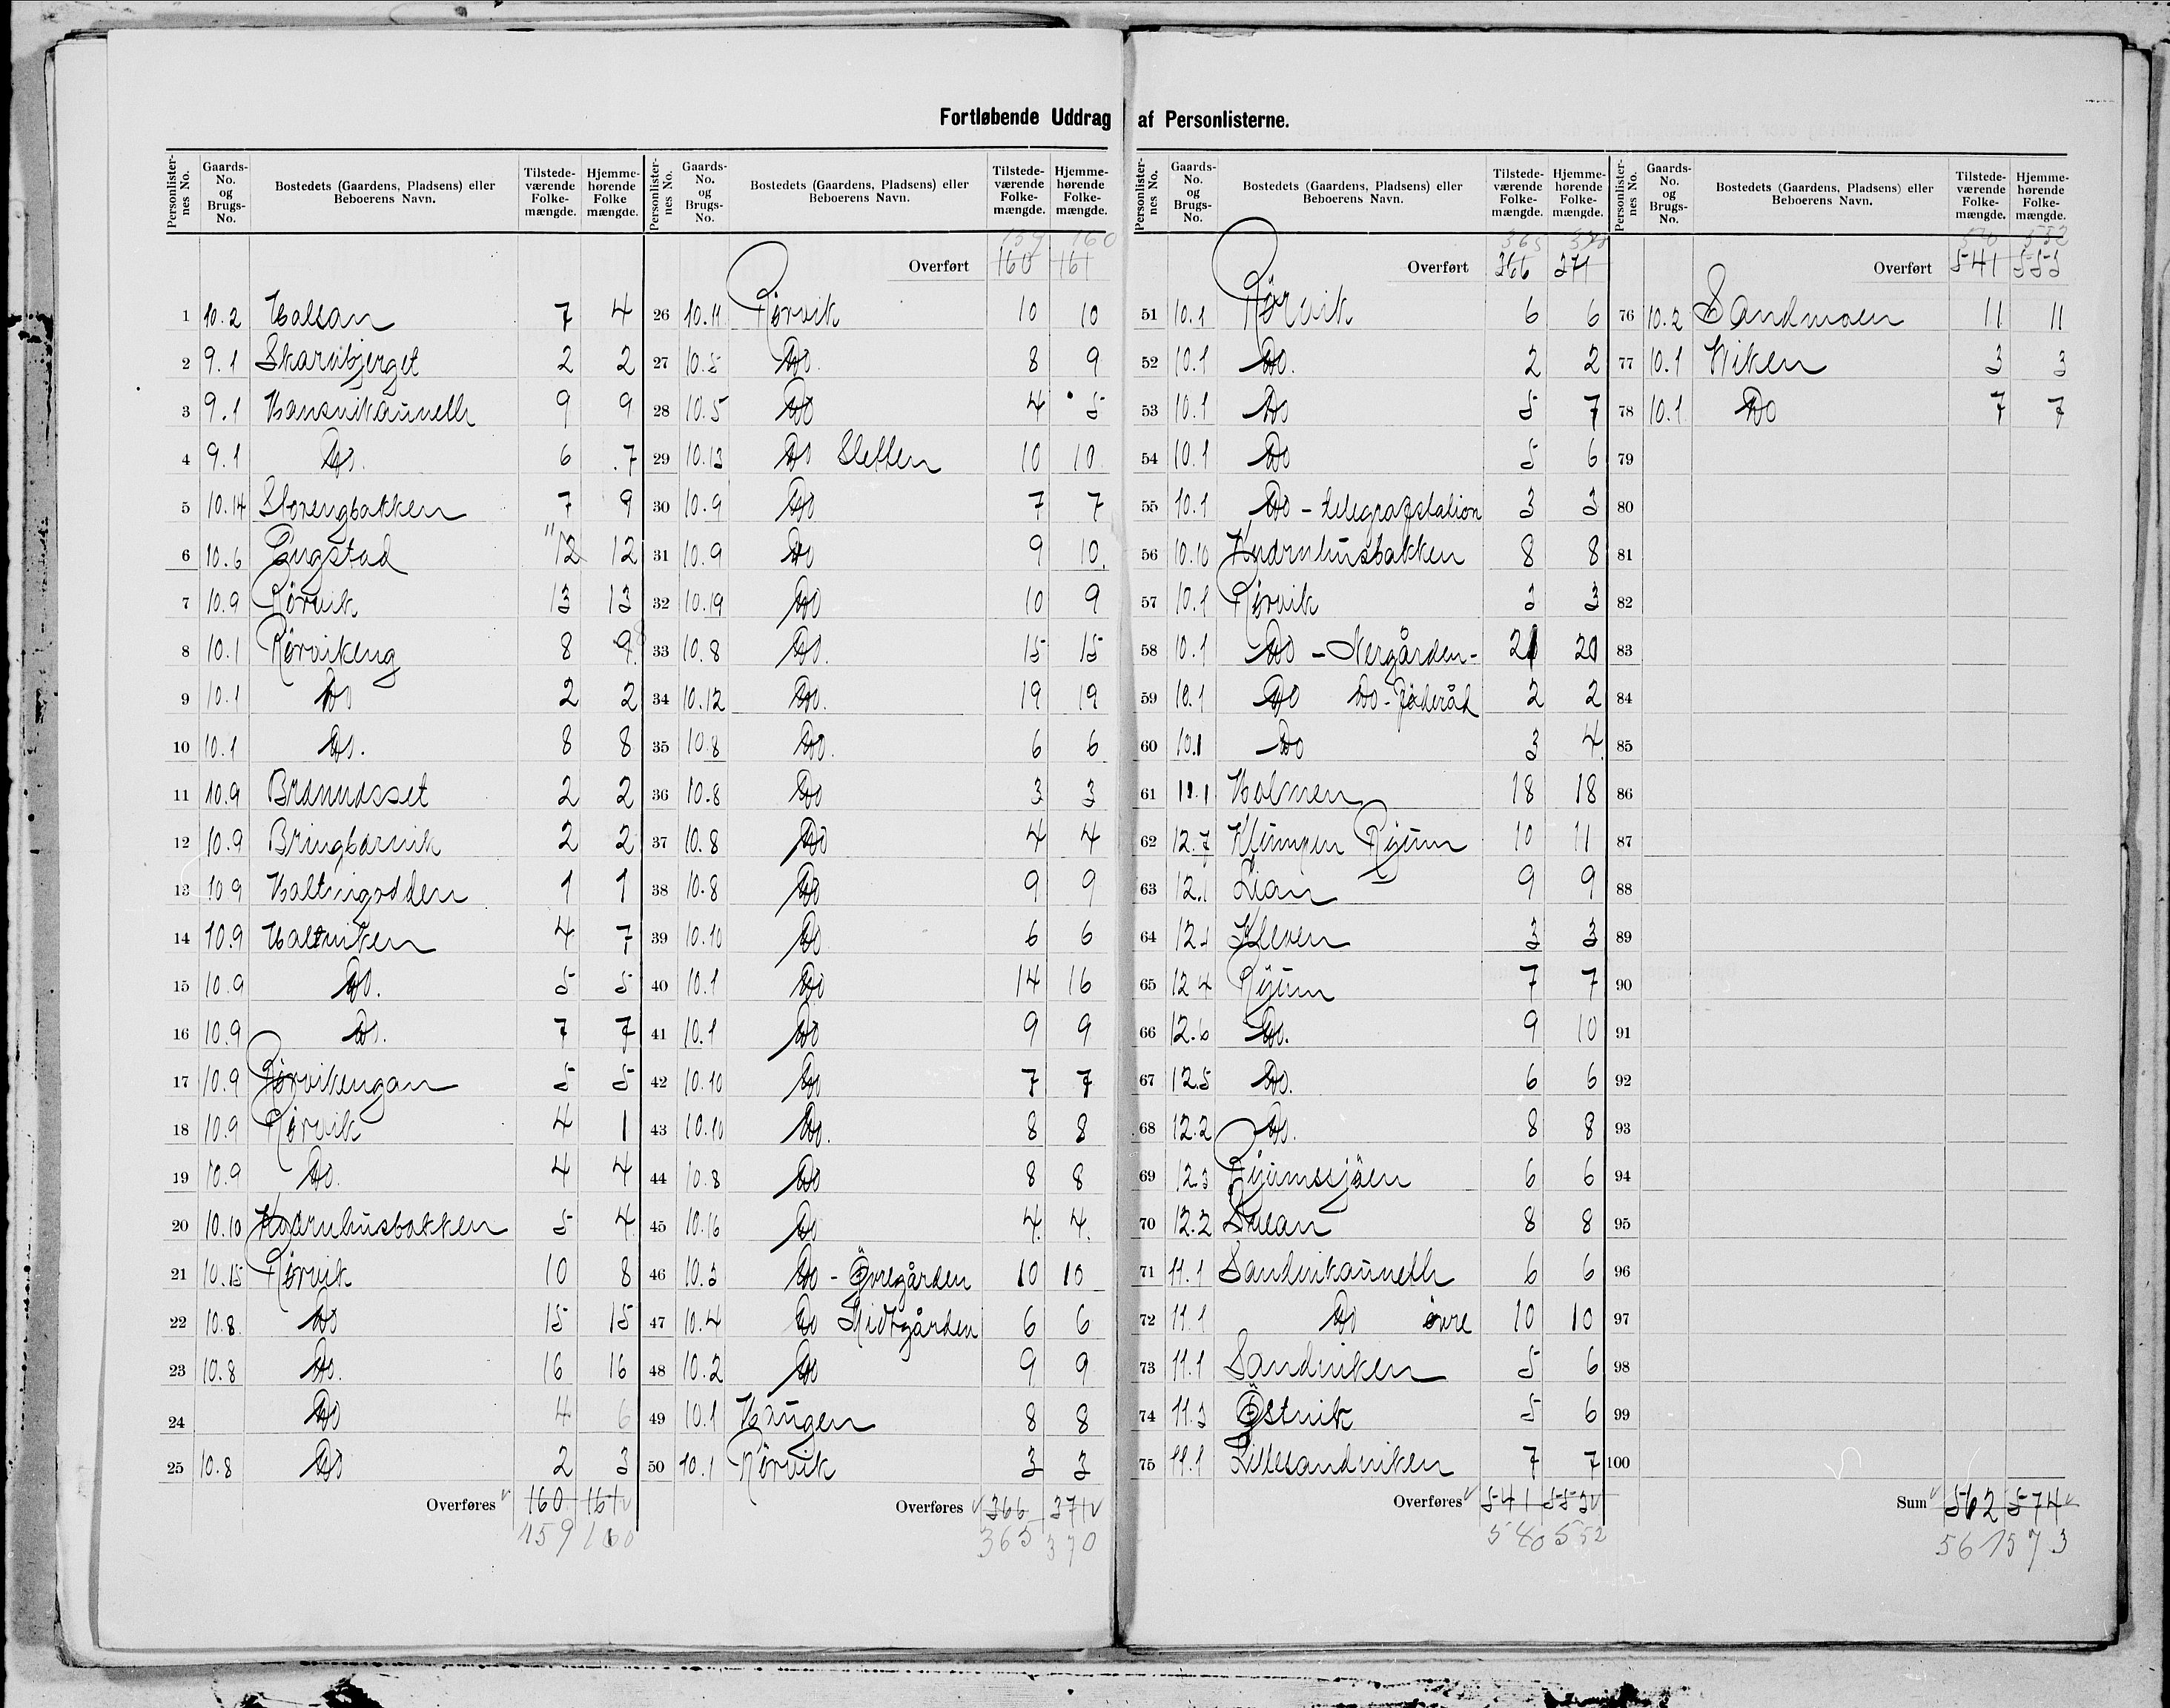 Fortløbende Uddrag af Personlisterne.
Personlisternes No. Gaards-No. og Brugs-No. Bostedets (Gaardens, Pladsens) eller Beboerens Navn. Tilstedeværende Folkemængde. Hjemmehørende Folkemængde.
1 10.2 Halsan 7 4
2 9.1 Skarvbjerget 2 2
3 9.1 Hansvikaunelh 9 9
4 9.1 Do. 6 7
5 10.14 Storengbakken 7 9
6 10.6 Engstad 11 12 12
7 10.9 Rørvik 13 13
8 10.1 Rørvikeng 8 9
9 10.1 Do 2 2
10 10.1 Do. 8 8
11 10.9 Brannasset 2 2
12 10.9 Bringbærvik 2 2
13 10.9 Haltvigodden 1 1
14 10.9 Haltviken 4 7
15 10.9 Do. 5 5
16 10.9 Do. 7 7
17 10.9 Rørvikengan 5 5
18 10.9 Rørvik 4 1
19 10.9 Do. 4 4
20 10.10 Kværnhusbakken 5 4
21 10.15 Rørvik 10 8
22 10.8 Do 15 15
23 10.8 Do. 16 16
24 Do 4 6
25 10.8 Do 2 3
Overføres 160 161
159 160
Personlisternes No. Gaards-No. og Brugs-No. Bostedets (Gaardens, Pladsens) eller Beboerens Navn. Tilstedeværende Folkemængde. Hjemmehørende Folkemængde.
159 160
Overført 160 161
26 10.11 Rørvik 10 10
27 10.5 Do. 8 9
28 10.5 Do 4 5
29 10.13 Do Sletten 10 10
30 10.9 Do 7 7
31 10.9 Do 9 10.
32 10.19 Do 10 9
33 10.8 Do. 15 15
34 10.12 Do. 19 19
35 10.8 Do. 6 6
36 10.8 Do 3 3
37 10.8 Do 4 4
38 10.8 Do 9 9
39 10.10 Do 6 6
40 10.1 Do 14 16
41 10.1 Do 9 9
42 10.10 Do 7 7
43 10.10 Do. 8 8
44 10.8 Do 8 8
45 10.16 Do 4. 4.
46 10.3 Do - Övregården 10 10
47 10.4 Do Midtgården 6 6
48 10.2 Do 9 9
49 10.1 Haugen 8 8
50 10.1 Rørvik 3 3
Overføres 366 371
365 370
Personlisternes No. Gaards-No. og Brugs-No. Bostedets (Gaardens, Pladsens) eller Beboerens Navn. Tilstedeværende Folkemængde. Hjemmehørende Folkemængde.
365
Overført 366 371
51 10.1 Rørvik 6 6
52 10.1 Do. 2 2
53 10.1 Do 5 7
54 10.1 Do 5 6
55 10.1 Do - telegrafstation 3 3
56 10.10 Kværnhusbakken 8 8
57 10.1 Rørvik 3 3
58 10.1 Do - Nergården - 21 20
59 10.1 Do Do - föderåd 2 2
60 10.1 Do 3 4
61 11.1 Holmen 18 18
62 12.7 Klungen Ryum 10 11
63 12.1 Lian 9 9
64 12.1 Kleven 3 3
65 12.4 Ryum 7 7
66 12.6 Do. 9 10
67 12.5 Do. 6 6
68 12.2 Do. 8 8
69 12.3 Ryumssjøen 6 6
70 12.2 Svean 8 8
71 11.1 Sandvikaunelh 6 6
72 11.1 Do övre 10 10
73 11.1 Sandviken 5 6
74 11.3 Östvik 5 6
75 11.1 Lillesandviken 7 7
Overføres 541 553
540 552
Personlisternes No. Gaards-No. og Brugs-No. Bostedets (Gaardens, Pladsens) eller Beboerens Navn. Tilstedeværende Folkemængde. Hjemmehørende Folkemængde.
540 552
Overført 541 553
76 10.2 Sandmoen 11 11
77 10.1 Viken 3 3
78 10.1 Do 7 7
79
80
81
82
83
84
85
86
87
88
89
90
91
92
93
94
95
96
97
98
99
100
Sum 562 574
561 573